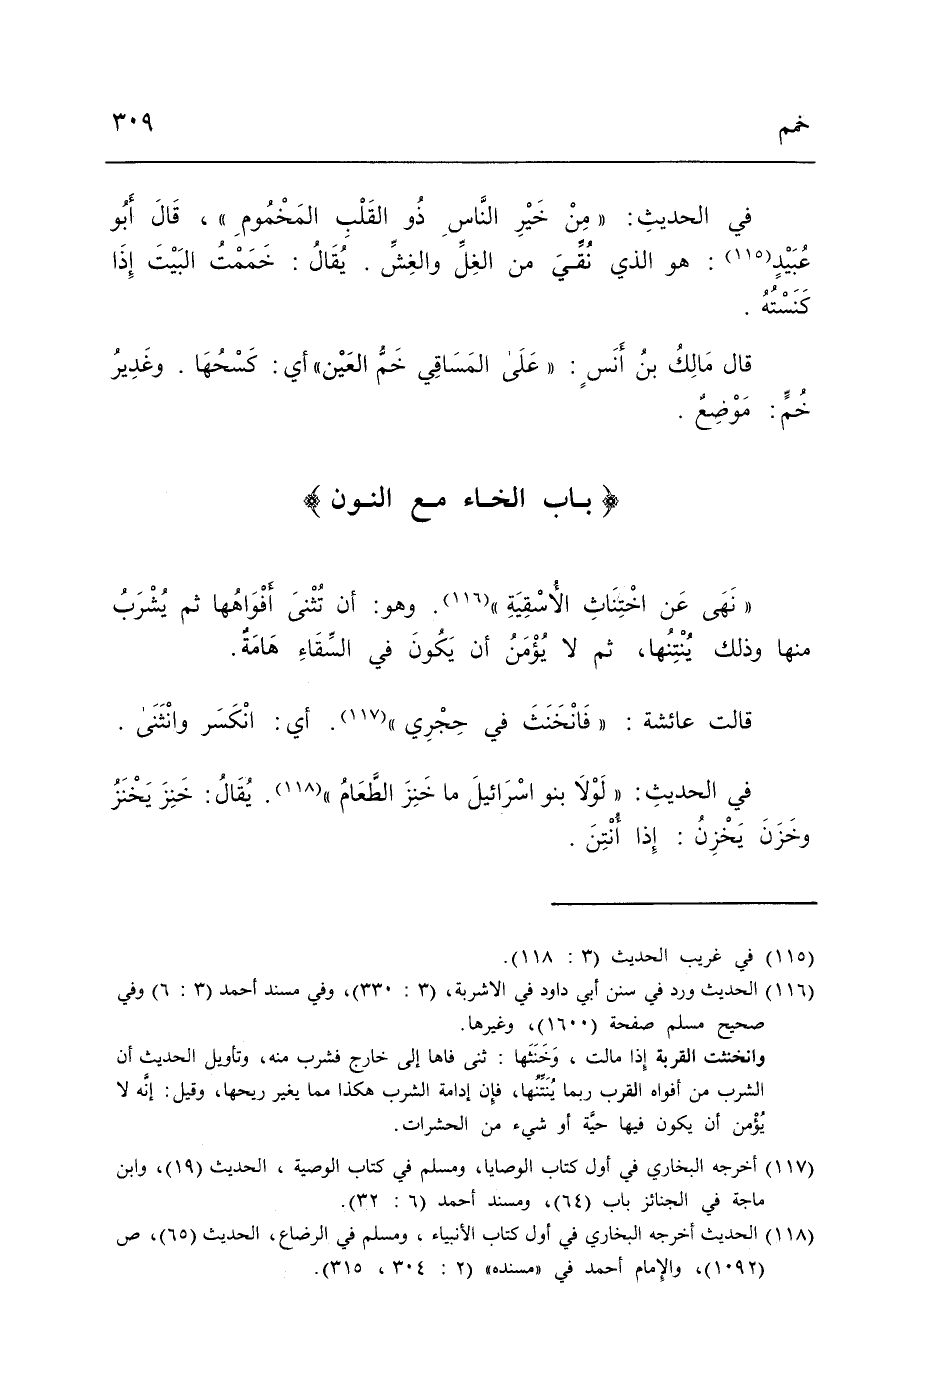 خمم ٣٠٩
في الحديث: « مِنْ خَيْرِ النَّاسِ ذُو القَلْبِ المَخْمُومِ » ، قَالَ أَبُو
عُبَيْدٍ(١١٥) : هو الذي نُقِّيَ من الغِلِّ والغِشِّ . يُقَالُ : خَمَمْتُ البَيْتَ إِذَا
كَنَسْتُهُ .
قال مَالِكُ بنُ أَنَسٍ : « عَلَى المَسَاقِي خَمُّ العَيْن» أي: كَسْحُهَا . وغَدِيرُ
خُمٍّ : مَوْضِعٌ .
﴿ بـاب الخـاء مـع النـون ﴾
« نَهَى عَن اخْتِنَاثِ الأُسْقِيَةِ »(١١٦). وهو: أن تُثْنىَ أَفْوَاهُها ثم يُشْرَبُ
منها وذلك يُنْتِنُها، ثم لا يُؤْمَنُ أن يَكُونَ في السِّقَاءِ هَامَةٌ.
قالت عائشة : « فَانْخَنَثَ في حِجْرِي »(١١٧). أي: انْكَسَر وانْثَنَىٰ .
في الحديثِ: « لَوْلَا بنو اسْرَائيلَ ما خَنِزَ الطَّعَامُ »(١١٨). يُقَالُ: خَنِزَ يَخْنَزُ
وخَزَنَ يَخْزِنُ : إِذا أُنْتِنَ .
(١١٥) في غريب الحديث (٣ : ١١٨).
(١١٦) الحديث ورد في سنن أبي داود في الاشربة، (٣ : ٣٣٠)، وفي مسند أحمد (٣ : ٦) وفي
صحيح مسلم صفحة (١٦٠٠)، وغيرها.
وانخنثت القربة إذا مالت ، وَخَنَثَها : ثنى فاها إلى خارج فشرب منه، وتأويل الحديث أن
الشرب من أفواه القرب ربما يُنَتِّنُها، فإن إدامة الشرب هكذا مما يغير ريحها، وقيل: إنَّه لا
يُؤْمن أن يكون فيها حيَّة أو شيء من الحشرات.
(١١٧) أخرجه البخاري في أول كتاب الوصايا، ومسلم في كتاب الوصية ، الحديث (١٩)، وابن
ماجة في الجنائز باب (٦٤)، ومسند أحمد (٦ : ٣٢).
(١١٨) الحديث أخرجه البخاري في أول كتاب الأنبياء ، ومسلم في الرضاع، الحديث (٦٥)، ص
(١٠٩٢)، والإمام أحمد في «مسنده» (٢ : ٣٠٤ ، ٣١٥).